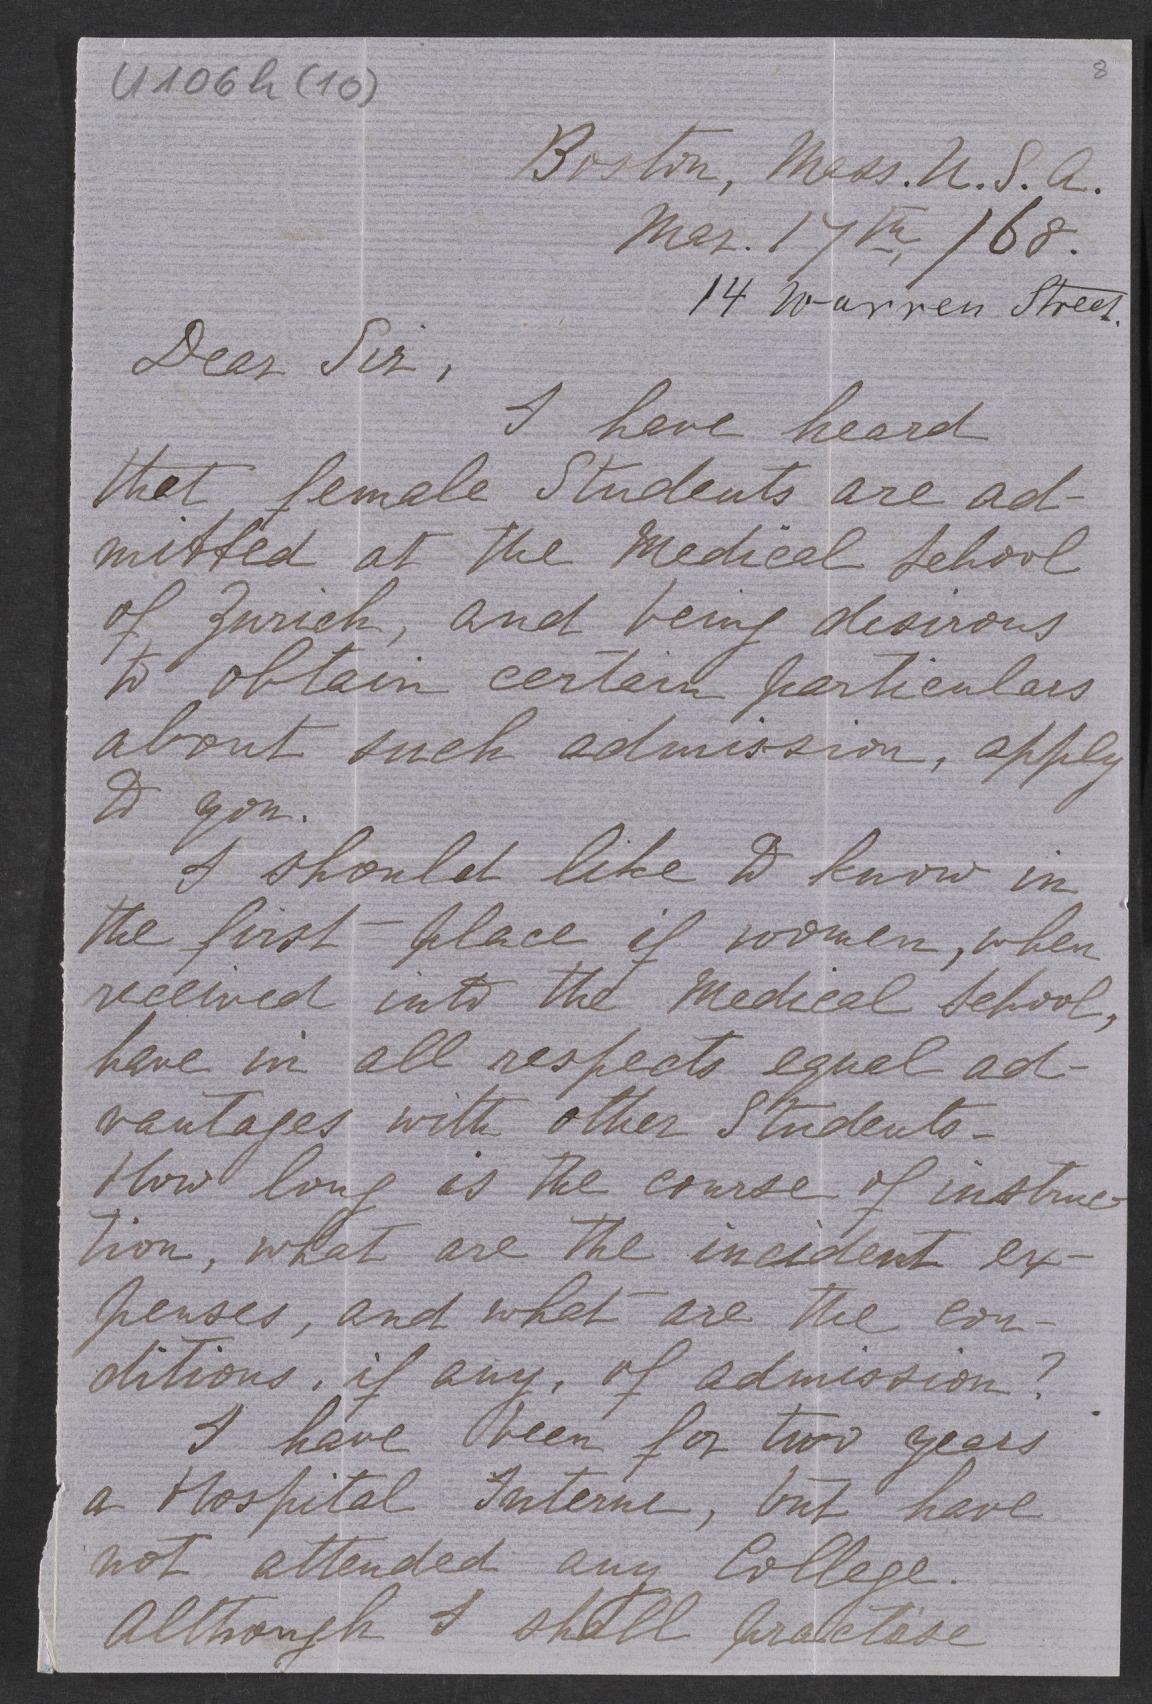 U106h(10)
8
Boston, Mass. U.S.A.
Mar. 17th, /68.
14 Warren Street.
Dear Sir,
I have heard
that female Students are ad-
mitted at the Medical School
of Zurich, and being desirous
to obtain certain particulars
about such admission, apply
to you.
I should like to know in
the first place if women, when
received into the Medical School,
have in all respects equal ad-
vantages with other Students-
How long is the course of instruc-
tion, what are the incident ex-
penses, and what are the con-
ditions, if any, of admission?
I have been for two years
a Hospital Interne, but have
not attended any College.
Although I shall practise